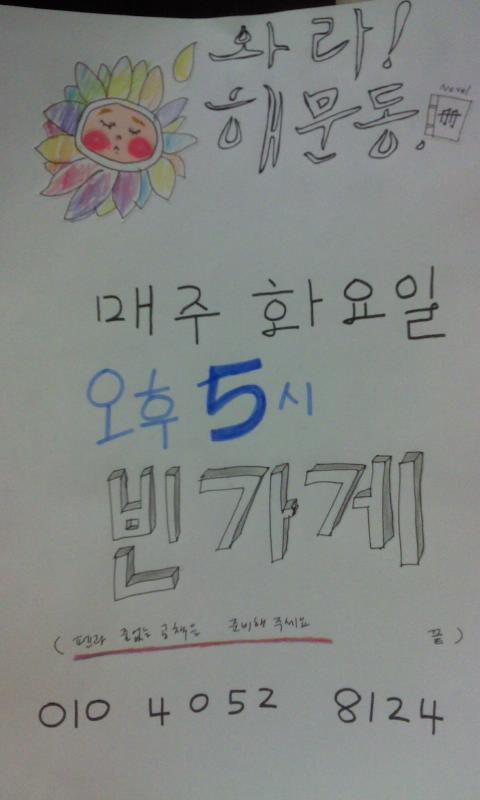 와라!
해문동!
Novel
冊
매주 화요일
오후 5시
빈가게
(펜과 줄없는 공책은 준비해 주세요 끝)
010 4052 8124